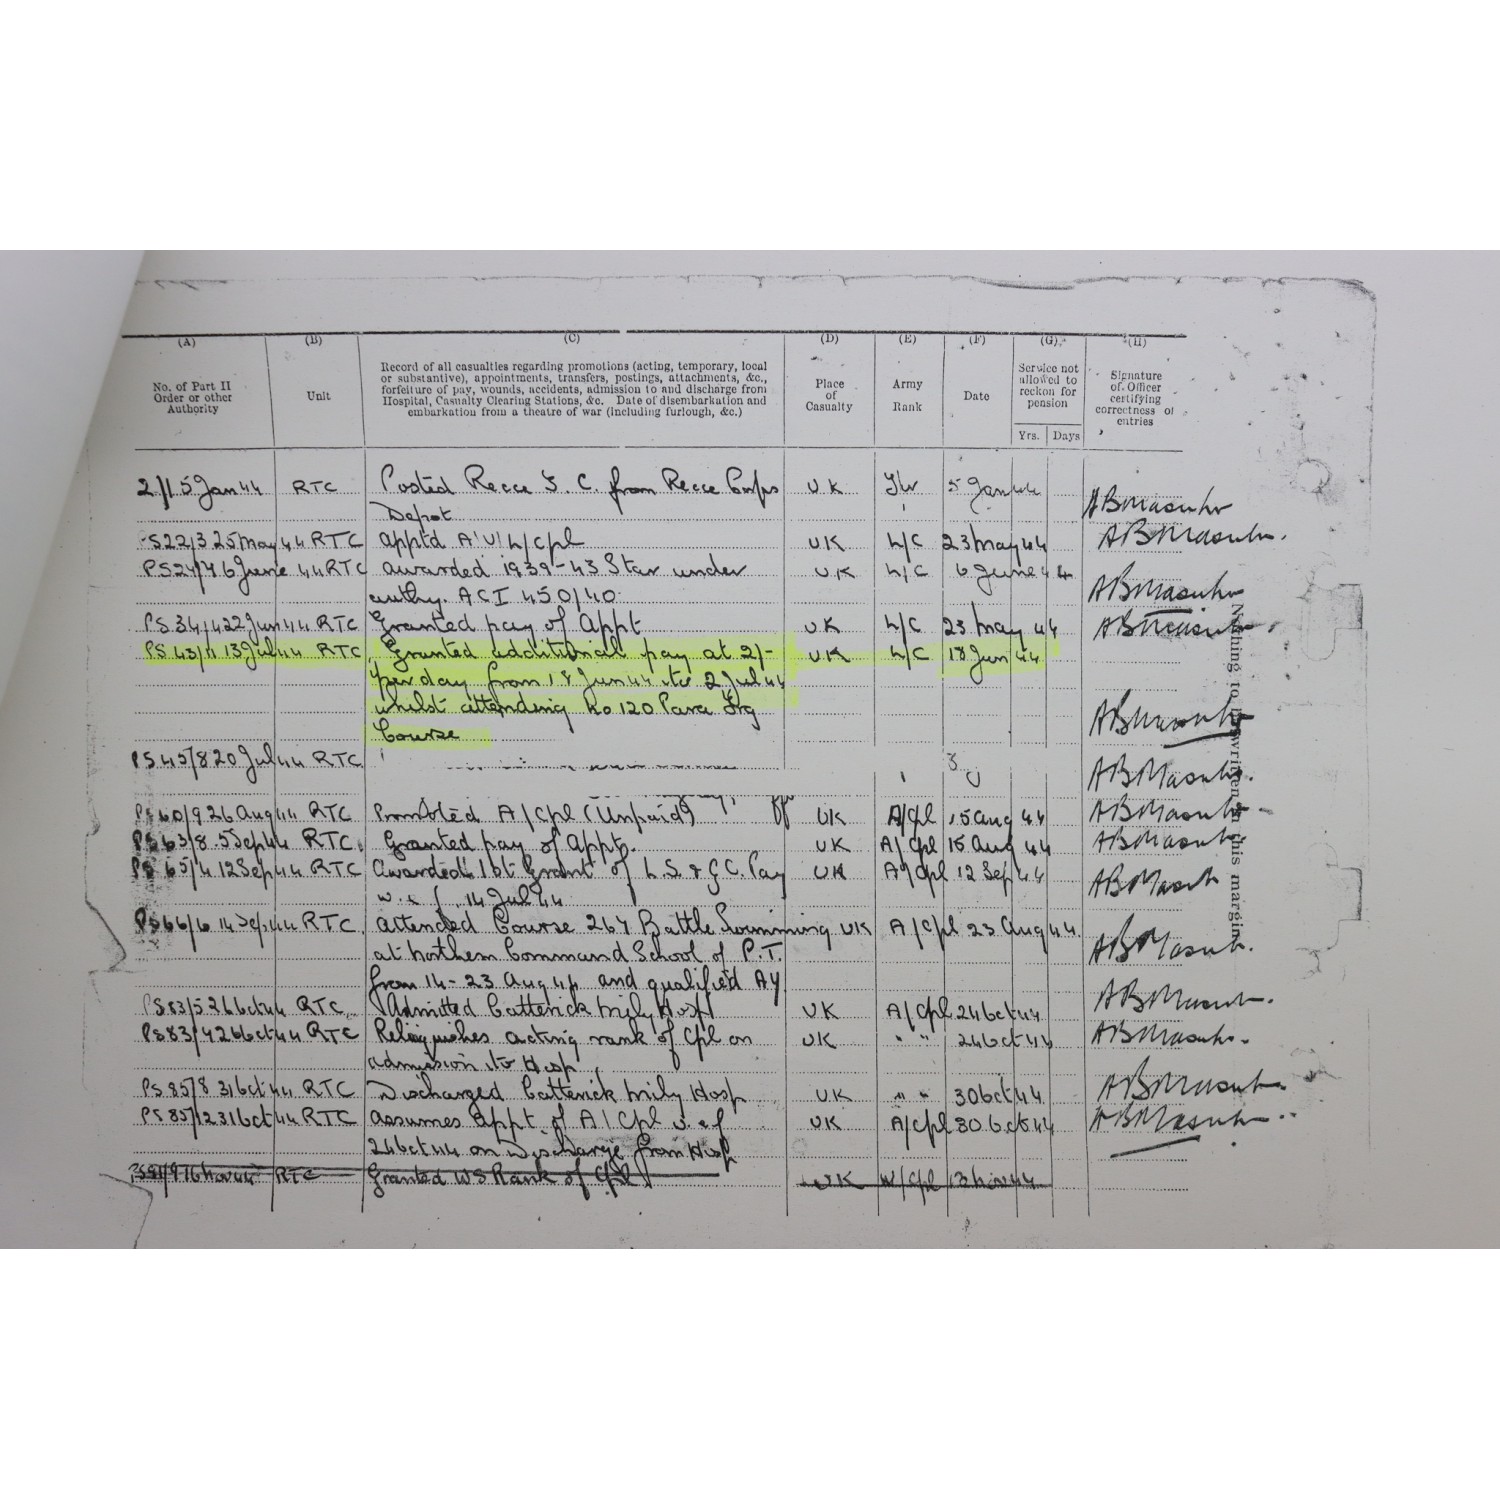 (A) (B) (C) (D) (E) (F) (G) (H)
No. of Part II Order or other Authority
Unit
Record of all casualties regarding promotions (acting, temporary, local
or substantive), appointments, transfers, postings, attachments, &c.,
forfeiture of pay, wounds, accidents, admission to and discharge from
Hospital, Casualty Clearing Stations, &c. Date of disembarkation and
embarkation from a theatre of war (including furlough, &c.)
Place of Casualty
Army Rank
Date
Service not allowed to reckon for pension
Yrs. Days
Signature of Officer certifying correctness of entries
2/1 5 Jan 44 RTC Posted Recce T. C. from Recce Corps UK 5 Jan 44
Depot
22/3 25 May 44 RTC apptd A/U/L/Cpl UK L/C 23 May 44
PS 24/7 6 June 44 RTC awarded 1939-43 Star under UK L/C 6 June 44
authy. ACI 450/40
PS 34/4 22 Jun 44 RTC Granted pay of Appt UK L/C 23 May 44
PS 43/11 13 Jul 44 RTC Granted additional pay at 2/- UK L/C 18 Jun 44
per day from 18 Jun 44 to 2 Jul 44
whilst attending No 120 Para Trg
Course
PS 45/8 20 Jul 44 RTC
PS 60/9 26 Aug 44 RTC Promoted A/Cpl (Unpaid) UK A/Cpl 15 Aug 44
PS 63/8 5 Sep 44 RTC Granted pay of Appt. UK A/Cpl 15 Aug 44
PS 65/4 12 Sep 44 RTC Awarded 1st Grant of L.S & G.C. Pay UK A/Cpl 12 Sep 44
w.e.f. 14 Jul 44
PS 66/6 14 Sep 44 RTC attended Course 267 Battle Swimming UK A/Cpl 23 Aug 44
at Northern Command School of P.T.
from 14-23 Aug 44 and qualified
PS 83/5 26 Oct 44 RTC Admitted Catterick Mily Hosp UK A/Cpl 24 Oct 44
PS 83/4 26 Oct 44 RTC Relinquishes acting rank of Cpl on UK " " 24 Oct 44
admission to Hosp
PS 85/8 31 Oct 44 RTC Discharged Catterick Mily Hosp UK " " 30 Oct 44
PS 85/12 31 Oct 44 RTC assumes Appt of A/Cpl w.e.f UK A/Cpl 30 Oct 44
24 Oct 44 on Discharge from Hosp
16 Nov 44 RTC Granted WS Rank of Cpl UK W/Cpl 13 Nov 44
Nothing to be written in this margin